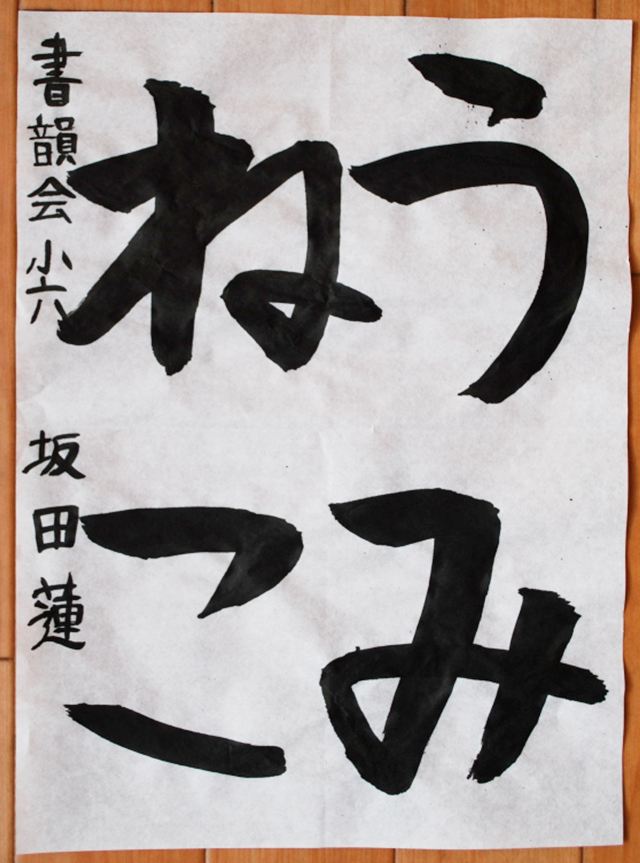 うみ
ねこ
書韻会 小六 坂田蓮